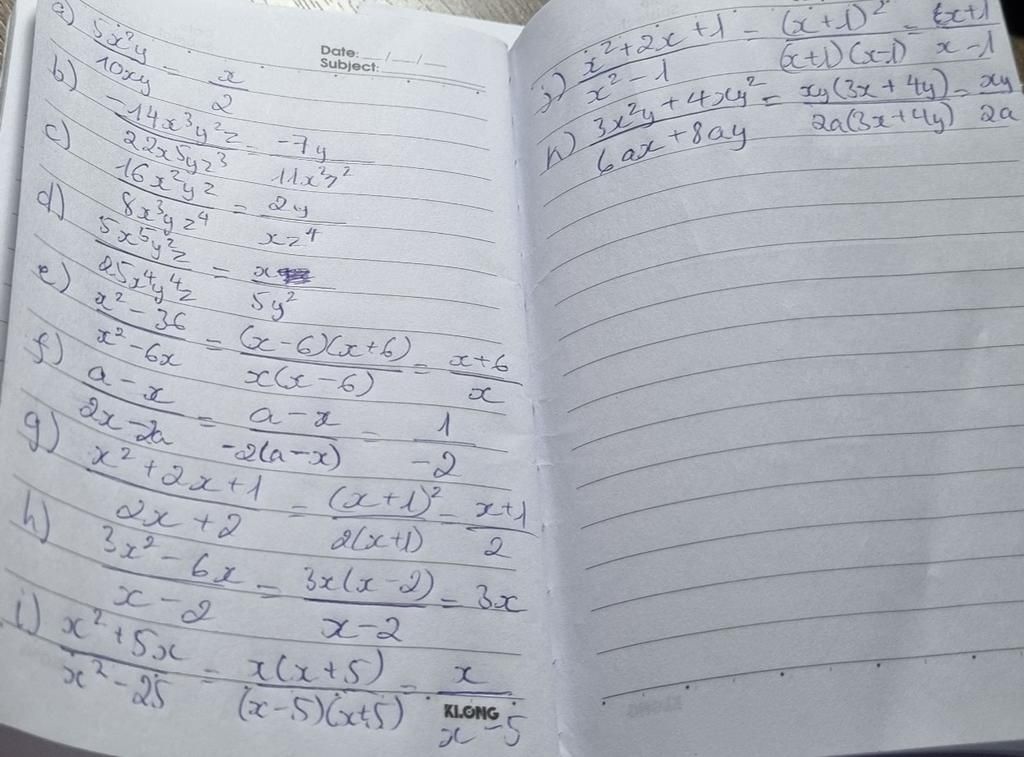 Date: __/__/__
Subject:
a) 5x²y/10xy = x/2
b) -14x³y²z/22x⁵yz³ = -7y/11x²z²
c) 16x²y²/8x³yz⁴ = 2y/xz⁴
d) 5x⁵y²z/25x⁴y⁴z = x/5y²
e) x² - 36/x² - 6x = (x-6)(x+6)/x(x-6) = x+6/x
f) a-x/2x-2a = a-x/-2(a-x) = 1/-2
g) x²+2x+1/2x+2 = (x+1)²/2(x+1) = x+1/2
h) 3x²-6x/x-2 = 3x(x-2)/x-2 = 3x
i) x²+5x/x²-25 = x(x+5)/(x-5)(x+5) = x/x-5
KLONG
j) x²+2x+1/x²-1 = (x+1)²/(x+1)(x-1) = x+1/x-1
k) 3x²y+4xy²/6ax+8ay = xy(3x+4y)/2a(3x+4y) = xy/2a